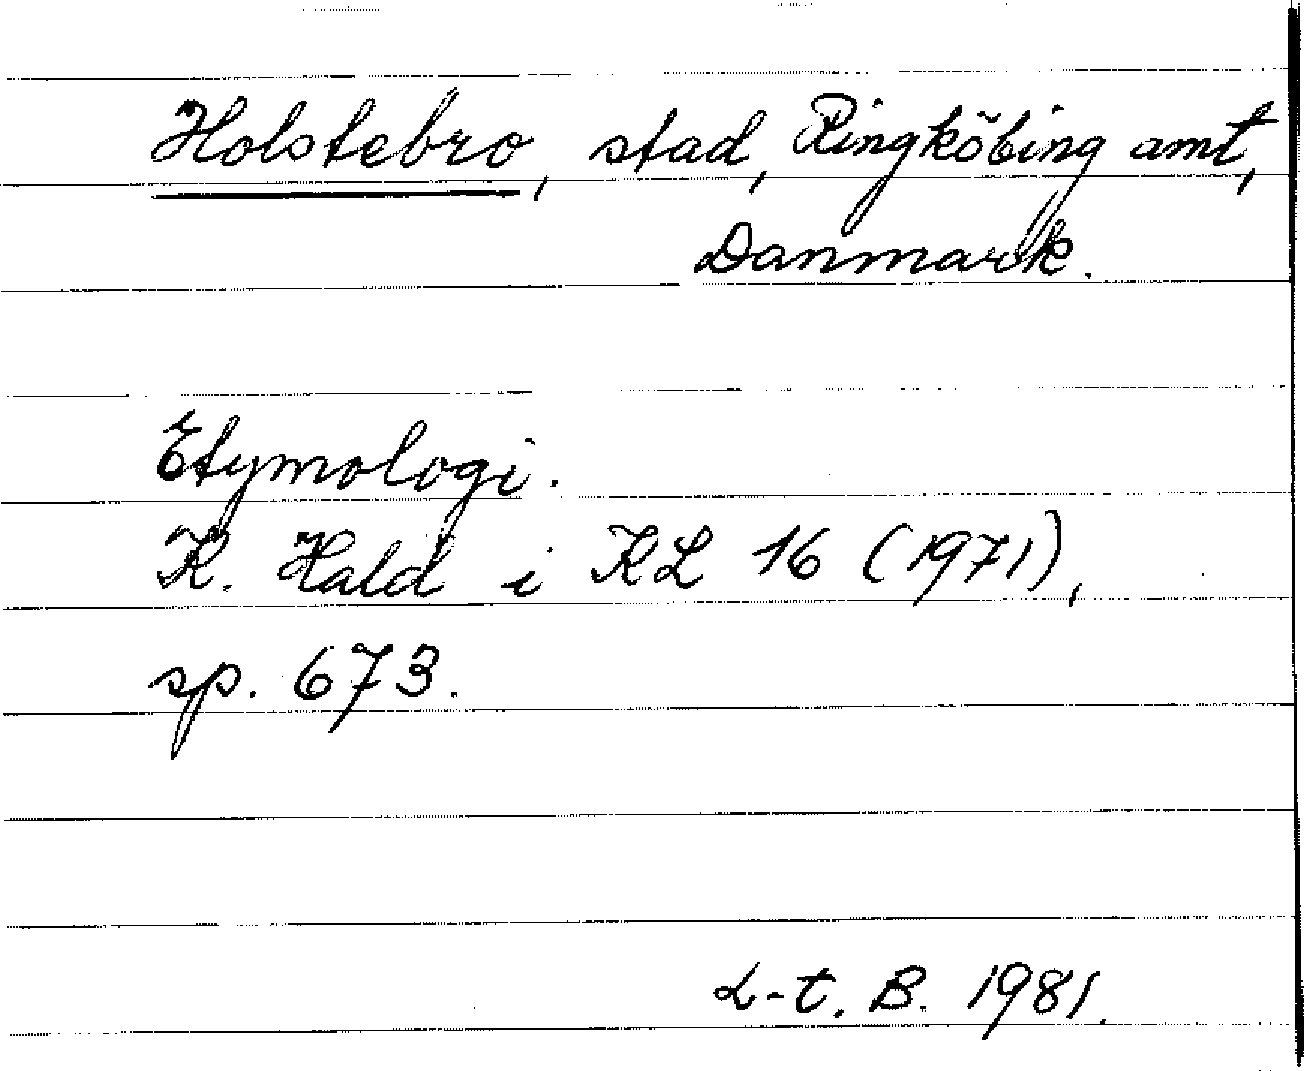 Holstebro, stad, Ringköbing amt,
Danmark.
Etymologi.
K. Hald i KL 16 (1971),
sp. 673.
L-t. B. 1981.